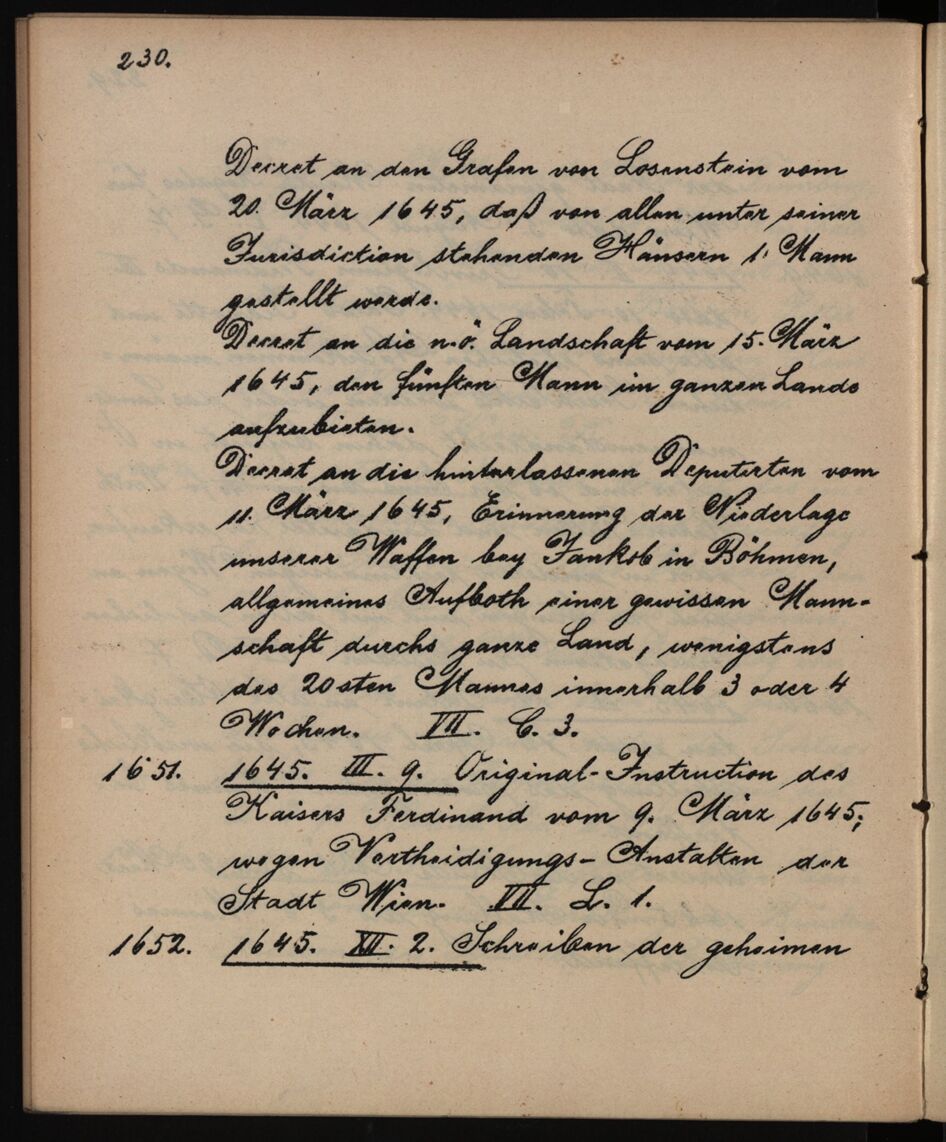 230.
Decret an den Grafen von Losenstein vom
20. März 1645, daß von allen unter seiner
Jurisdiction stehenden Häusern 1. Mann
gestellt werde.
Decret an die n.ö. Landschaft vom 15. März
1645, den fünften Mann im ganzen Lande
aufzubieten.
Decret an die hinterlassenen Deputirten vom
11. März 1645, Erinnerung der Niederlage
unserer Waffen bey Jankob in Böhmen,
allgemeines Aufboth einer gewissen Mann-
schaft durchs ganze Land, wenigstens
des 20sten Mannes innerhalb 3 oder 4
Wochen. VII. C. 3.
1651. 1645. III. 9. Original-Instruction des
Kaisers Ferdinand vom 9. März 1645,
wegen Vertheidigungs-Anstalten der
Stadt Wien. VII. L. 1.
1652. 1645. XII. 2. Schreiben der geheimen